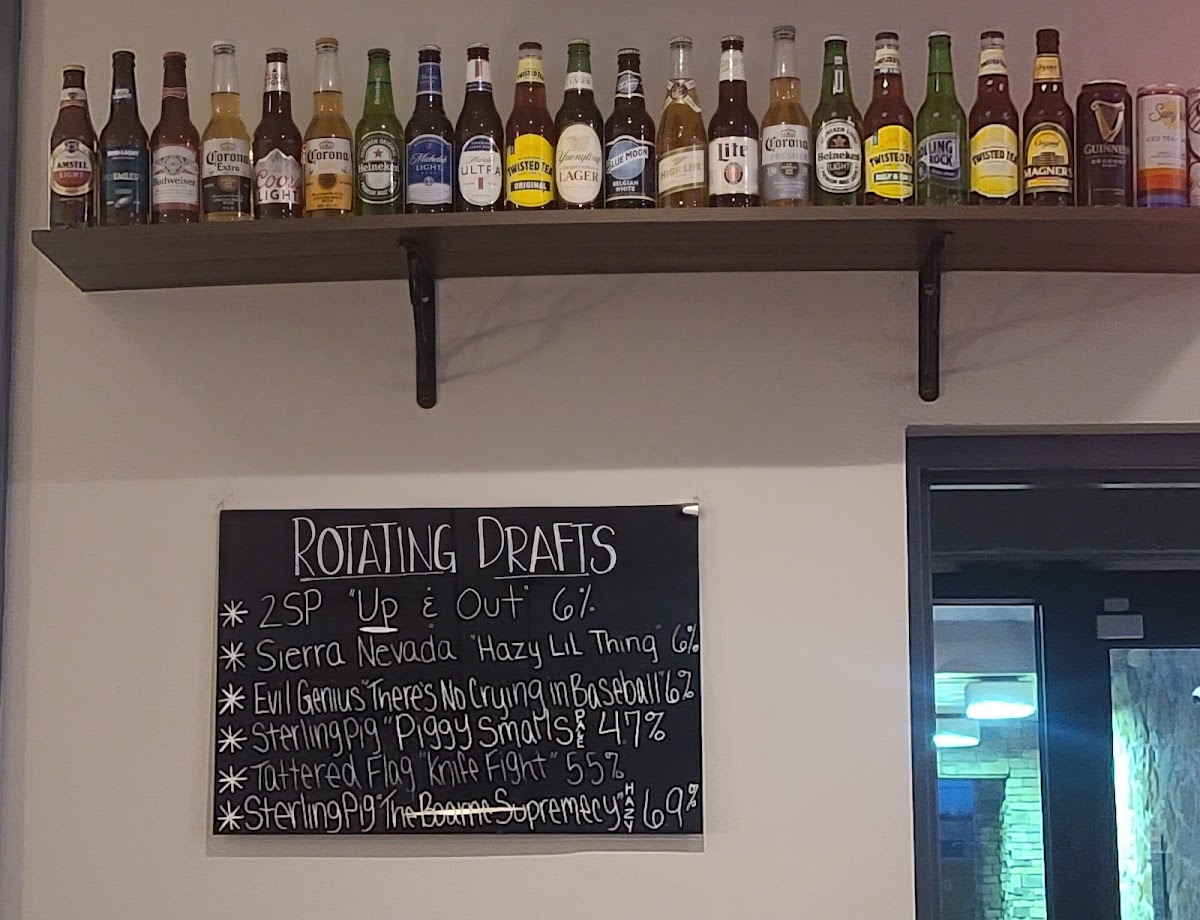 AMSTEL LIGHT
Budweiser
Corona Extra
Coors LIGHT
Corona
Heineken
Michelob LIGHT
ULTRA
TWISTED TEA ORIGINAL
Yuengling LAGER
BLUE MOON BELGIAN WHITE
HIGH LIFE
Lite
Corona PREMIER
Heineken LIGHT
TWISTED TEA HALF & HALF
LING ROCK
TWISTED TEA
Original MAGNERS
GUINNESS
ICED TEA
ROTATING DRAFTS
* 2SP "Up & Out" 6%
* Sierra Nevada "Hazy LiL Thing" 6%
* Evil Genius "There's No Crying in Baseball" 6%
* Sterling Pig "Piggy Smalls" PALE 4.7%
* Tattered Flag "Knife Fight" 5.5%
* Sterling Pig "The Boarne Supremecy" HAZY 6.9%